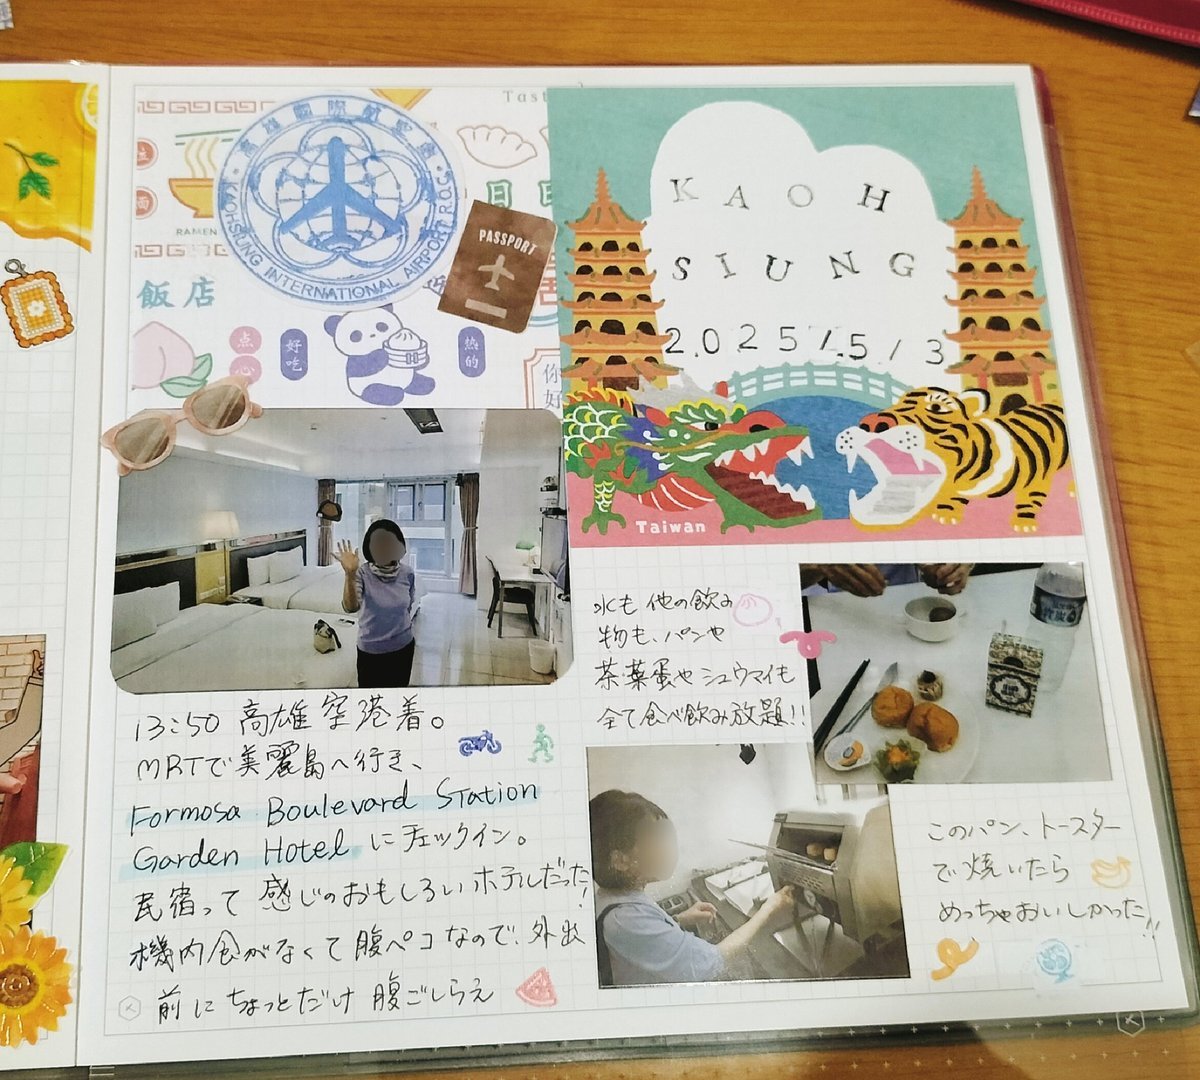 Tast
高雄國際航空站
KAOHSIUNG INTERNATIONAL AIRPORT R.O.C.
RAMEN
PASSPORT
飯店
点心
好吃
热的
你好
KAOH
SIUNG
2025/.5/3
Taiwan
13:50 高雄空港着。
MRTで美麗島へ行き、
Formosa Boulevard Station
Garden Hotel にチェックイン。
民宿って感じのおもしろいホテルだった!
機内食がなくて腹ペコなので、外出
前にちょっとだけ腹ごしらえ
水も他の飲み
物も、パンや
茶葉蛋やシュウマイも
全て食べ飲み放題!!
このパン、トースター
で焼いたら
めっちゃおいしかった!!